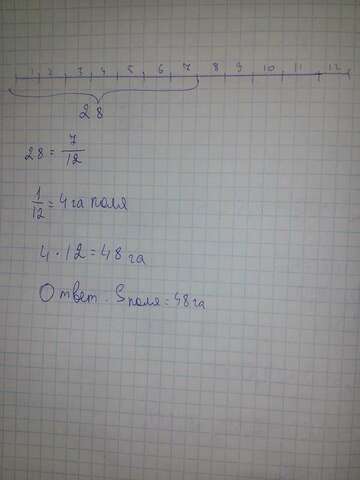 1 2 3 4 5 6 7 8 9 10 11 12
28
28 = 7/12
1/12 = 4 га поля
4 · 12 = 48 га
Ответ. S поля = 48 га